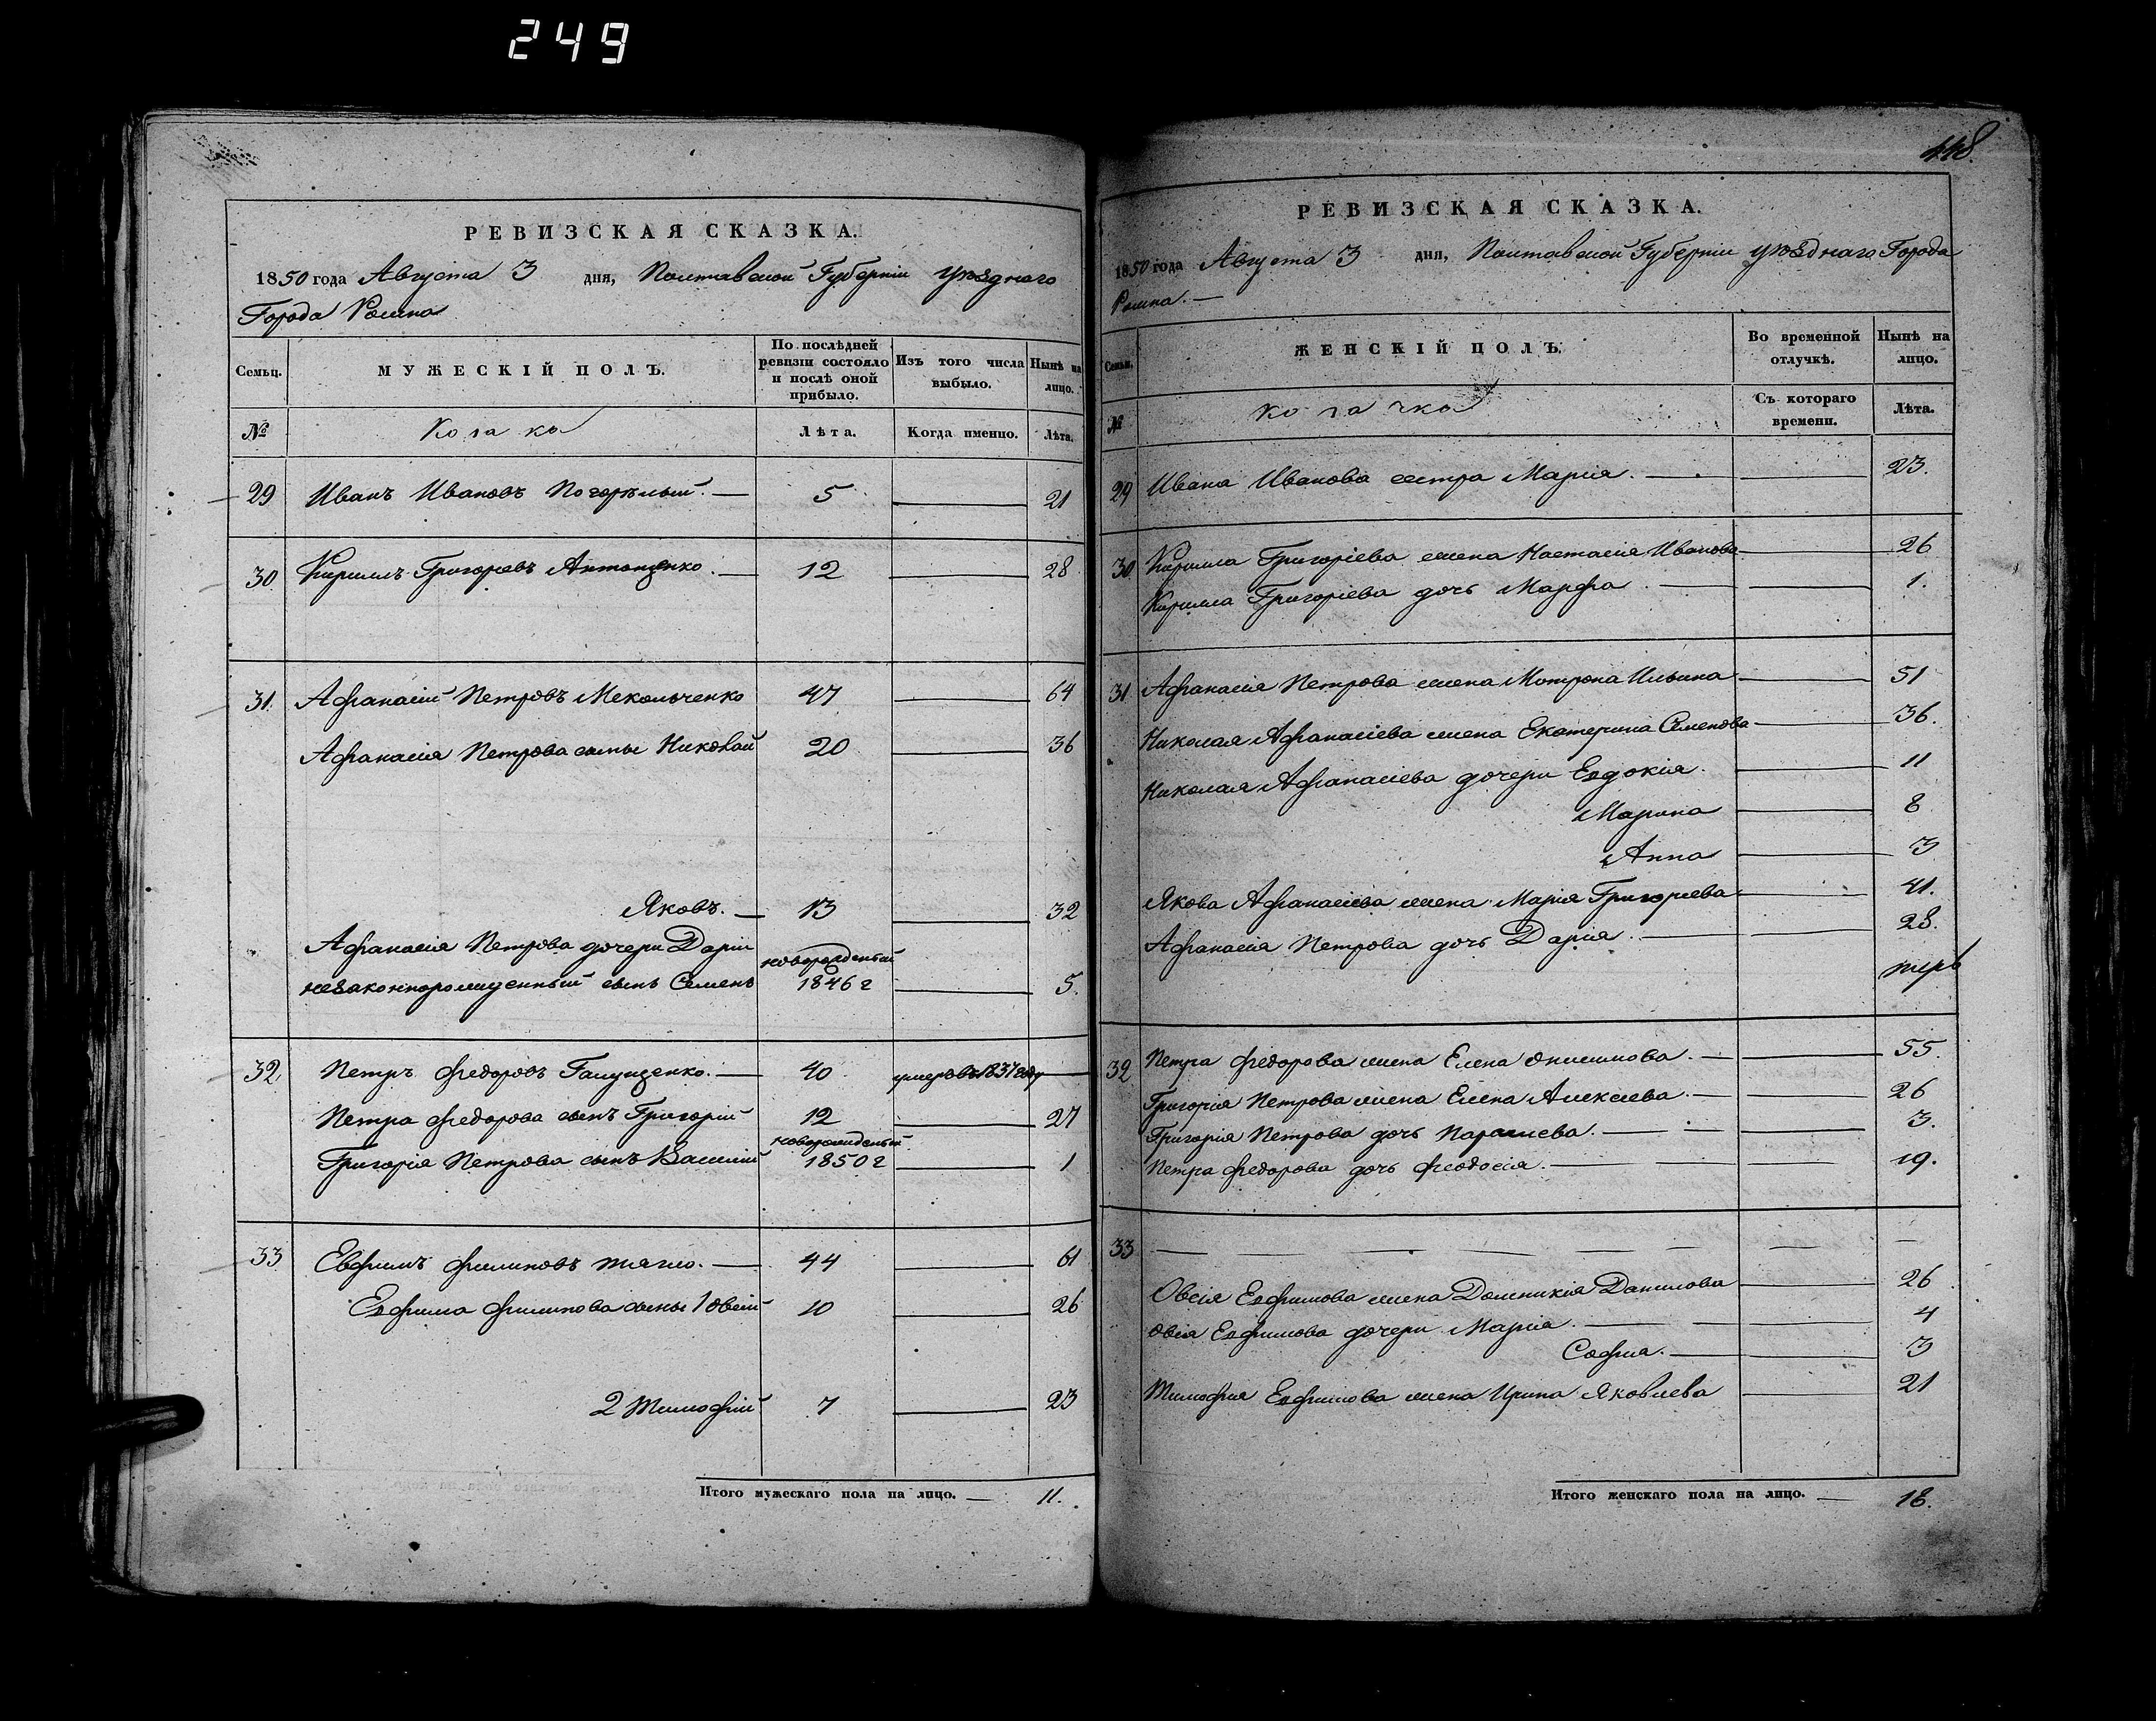 249
РЕВИЗСКАЯ СКАЗКА.
1850 года Августа 3 дня, Полтавской Губерніи уѣзднаго
Города Ромна
Семьи. МУЖЕСКІЙ ПОЛЪ. По послѣдней ревизіи состояло и послѣ оной прибыло. Изъ того числа выбыло. Нынѣ на лицо.
№ Козаки Лѣта. Когда именно. Лѣта.
29 Иванъ Ивановъ Погорѣлый. — 5 — 21
30. Кирилъ Григоревъ Антощенко. — 12 — 28
31. Афанасій Петровъ Мекольченко 47 — 64
Афанасія Петрова сыны Николай 20 — 36
Яковъ. — 13 — 32
Афанасія Петрова дочери Даріи новорожденый
незаконнорожденный сынъ Семенъ 1846 г — 5.
32. Петръ Федоровъ Галущенко. — 40 умеръ въ 1837 году —
Петра Федорова сынъ Григорій 12 — 27
новорожденый
Григорія Петрова сынъ Василій 1850 г — 1
33 Евфимъ Филиповъ Тягло. — 44 — 61
Евфима Филипова сыны 1 Овсій 10 — 26
2 Тимофій 7 — 23
Итого мужескаго пола на лицо. — 11.
448.
РЕВИЗСКАЯ СКАЗКА.
1850 года Августа 3 дня, Полтавской Губерніи уѣзднаго Города
Ромна. —
Семьи. ЖЕНСКІЙ ПОЛЪ. Во временной отлучкѣ. Нынѣ на лицо.
№ Козачки Съ котораго времени. Лѣта.
29 Ивана Иванова сестра Марія. — 23.
30 Кирила Григоріева жена Настасія Иванова — 26
Кирила Григоріева дочь Марфа — 1.
31 Афанасія Петрова жена Мотрона Ильина — 51
Николая Афанасіева жена Екатерина Семенова — 36.
Николая Афанасіева дочери Евдокія. — 11
Марина — 8
Анна — 3
Якова Афанасіева жена Марія Григорьева — 41.
Афанасія Петрова дочь Дарія. — 28.
32 Петра Федорова жена Елена Онисимова. — 55.
Григорія Петрова жена Елена Алексеева. — 26
Григорія Петрова дочь Параскева. — 3.
Петра Федорова дочь Феодосія. — 19.
33 — — — — — — — —
Овсія Евфимова жена Домникія Данилова — 26
Овсія Евфимова дочери Марія. — 4
Софія. — 3
Тимофія Евфимова жена Ирина Яковлева — 21
Итого женскаго пола на лицо. — 18.